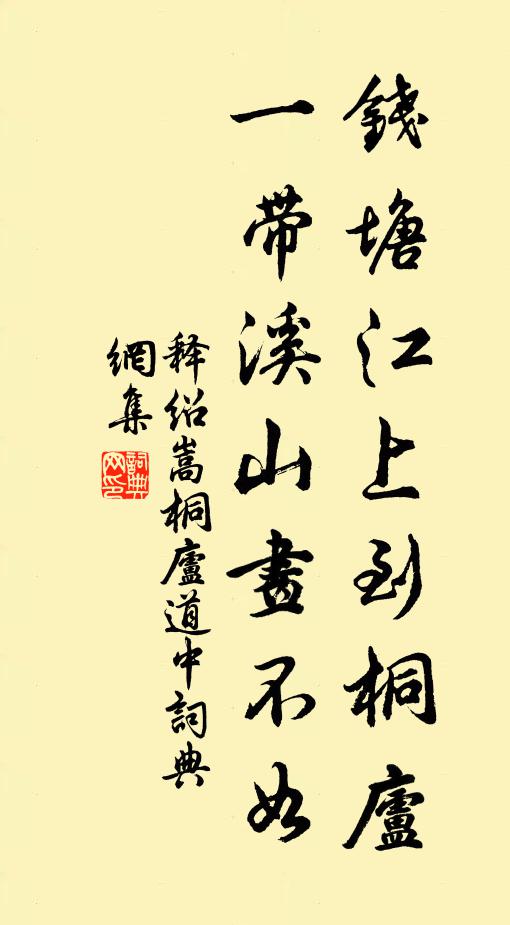 錢塘江上到桐廬
一带溪山畫不如
释绍嵩桐廬道中詞典
網集
詞典网印